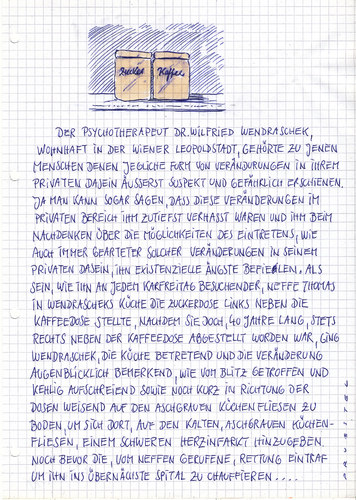 Zucker Kaffee
DER PSYCHOTHERAPEUT DR. WILFRIED WENDRASCHEK,
WOHNHAFT IN DER WIENER LEOPOLDSTADT, GEHÖRTE ZU JENEN
MENSCHEN DENEN JEGLICHE FORM VON VERÄNDURUNGEN IN IHREM
PRIVATEN DASEIN ÄUSSERST SUSPEKT UND GEFÄHRLICH ERSCHIENEN.
JA MAN KANN SOGAR SAGEN, DASS DIESE VERÄNDERUNGEN IM
PRIVATEN BEREICH IHM ZUTIEFST VERHASST WAREN UND IHM BEIM
NACHDENKEN ÜBER DIE MÖGLICHKEITEN DES EINTRETENS, WIE
AUCH IMMER GEARTETER SOLCHER VERÄNDERUNGEN IN SEINEM
PRIVATEN DASEIN, IHN EXISTENZIELLE ÄNGSTE BEFIELEN. ALS
SEIN, WIE IHN AN JEDEM KARFREITAG BESUCHENDER, NEFFE THOMAS
IN WENDRASCHEKS KÜCHE DIE ZUCKERDOSE LINKS NEBEN DIE
KAFFEEDOSE STELLTE, NACHDEM SIE DOCH, 40 JAHRE LANG, STETS
RECHTS NEBEN DER KAFFEEDOSE ABGESTELLT WORDEN WAR, GING
WENDRASCHEK, DIE KÜCHE BETRETEND UND DIE VERÄNDERUNG
AUGENBLICKLICH BEMERKEND, WIE VOM BLITZ GETROFFEN UND
KEHLIG AUFSCHREIEND SOWIE NOCH KURZ IN RICHTUNG DER
DOSEN WEISEND AUF DEN ASCHGRAUEN KÜCHENFLIESEN ZU
BODEN, UM SICH DORT, AUF DEN KALTEN, ASCHGRAUEN KÜCHEN-
FLIESEN, EINEM SCHWEREN HERZINFARKT HINZUGEBEN.
NOCH BEVOR DIE, VOM NEFFEN GERUFENE, RETTUNG EINTRAF
UM IHN INS ÜBERNÄCHSTE SPITAL ZU CHAUFFIEREN ....